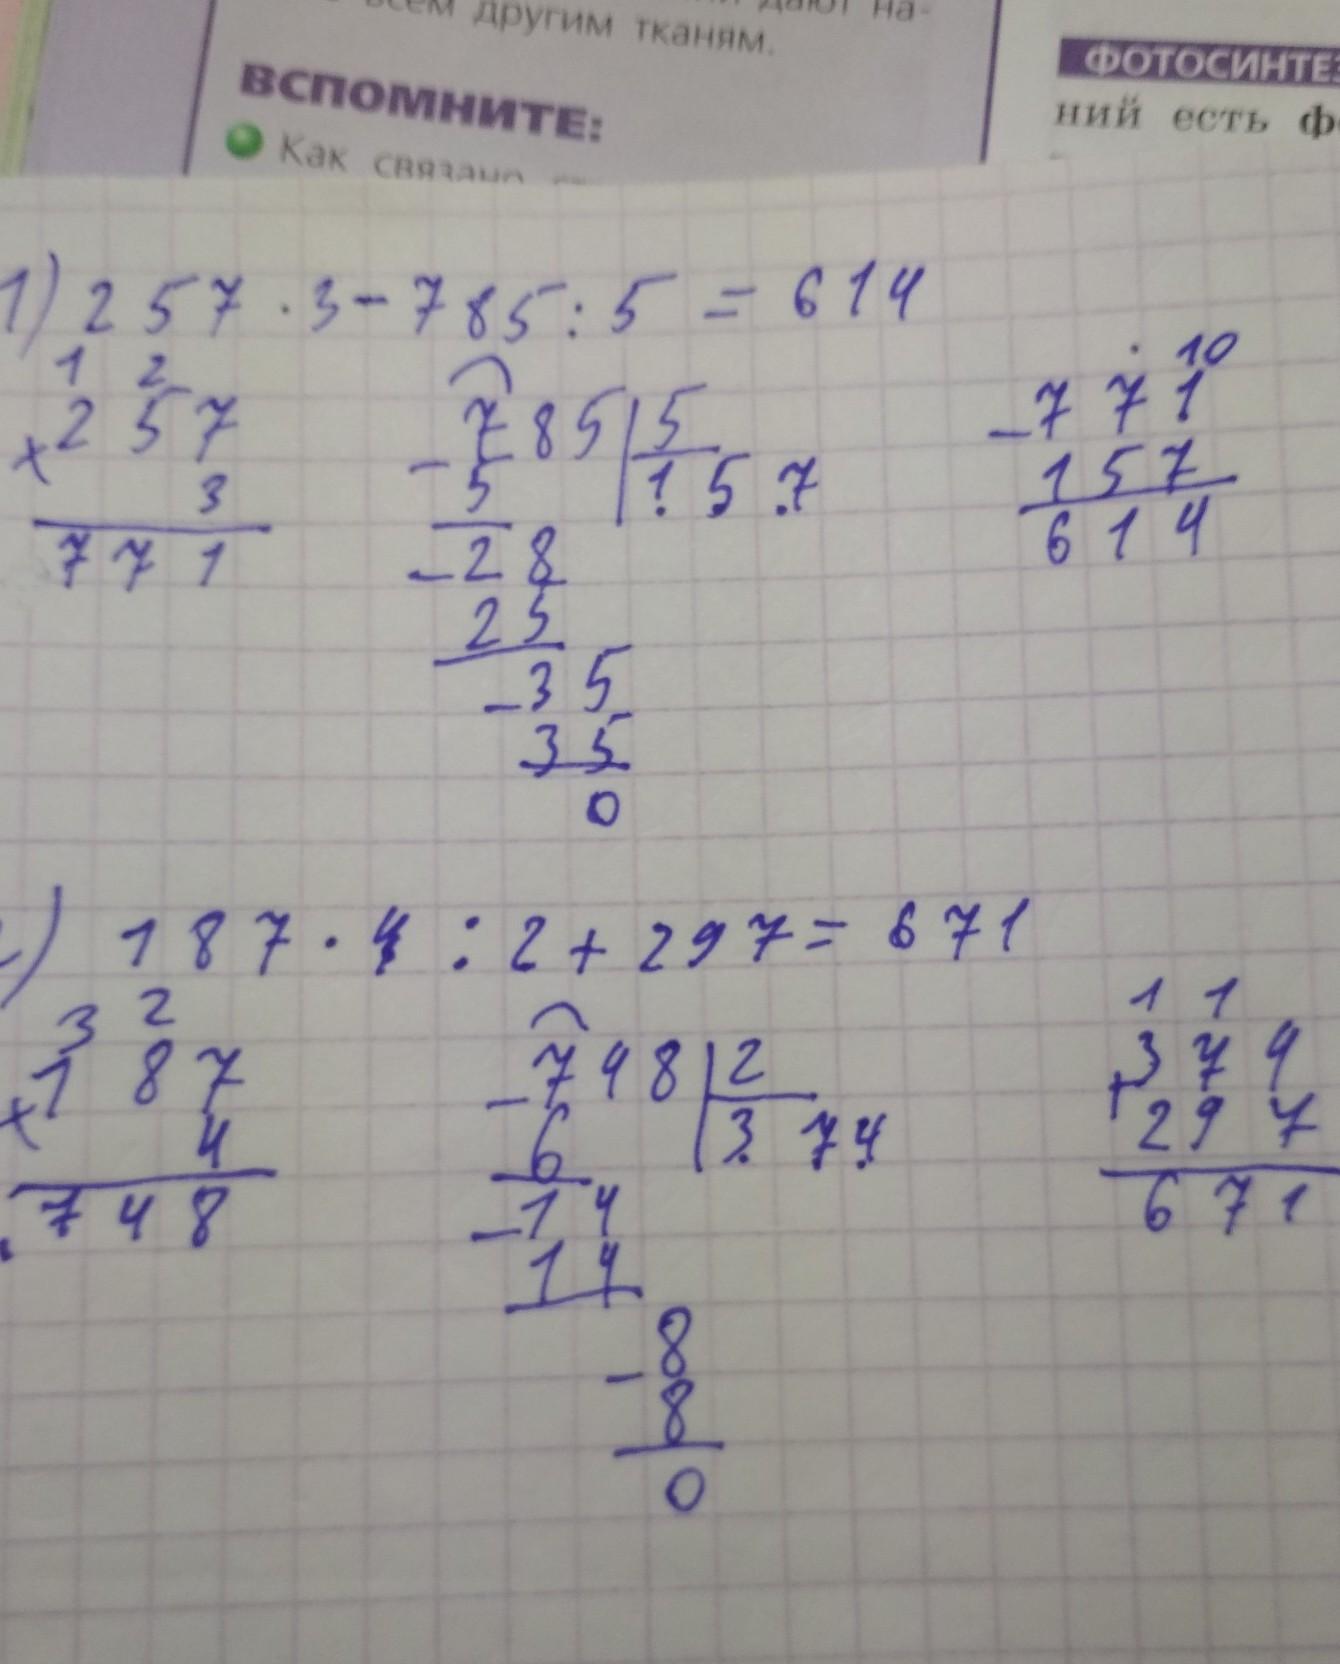 всем другим тканям.
ВСПОМНИТЕ:
Как связано
ФОТОСИНТЕЗ
ний есть
1) 257 · 3 - 785 : 5 = 614
1 2
× 257
3
771
- 785 | 5
5 | 157
- 28
25
- 35
35
0
· 10
- 771
157
614
) 187 · 4 : 2 + 297 = 671
3 2
× 187
4
748
- 748 | 2
6 | 374
- 14
14
- 8
8
0
1 1
+ 374
297
671